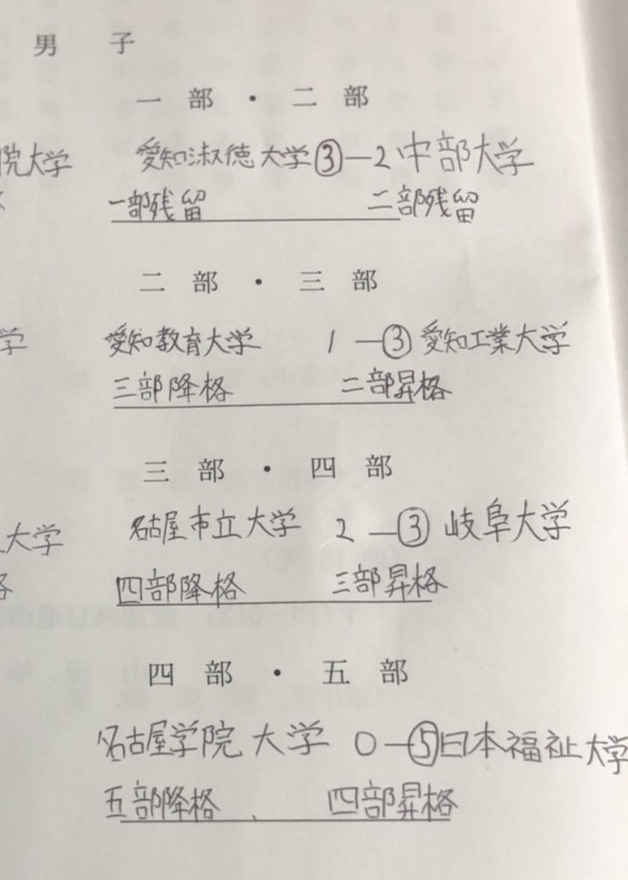 男 子
一 部 ・ 二 部
院大学 愛知淑徳大学③-2中部大学
一部残留 二部残留
二 部 ・ 三 部
学 愛知教育大学 1-③愛知工業大学
三部降格 二部昇格
三 部 ・ 四 部
大学 名古屋市立大学 2-③岐阜大学
格 四部降格 三部昇格
四 部 ・ 五 部
名古屋学院大学 0-⑤日本福祉大学
五部降格 四部昇格